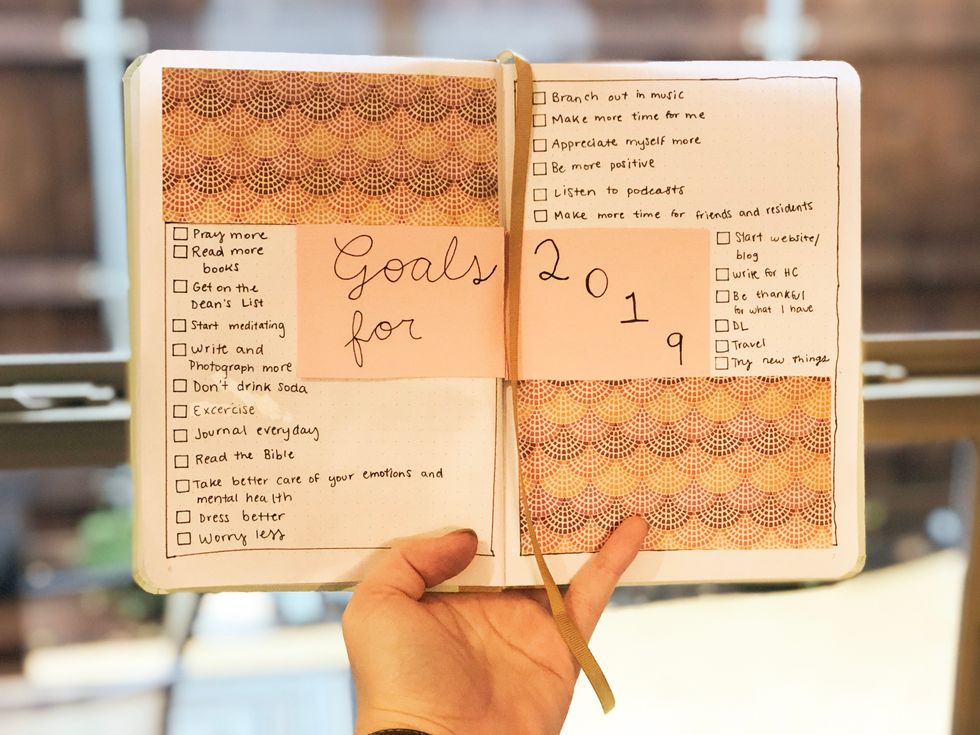 Pray more
Read more
books
Get on the
Dean's List
Start meditating
Write and
Photograph more
Don't drink soda
Excercise
Journal everyday
Read the Bible
Take better care of your emotions and
mental health
Dress better
Worry less
Goals
for
2019
Branch out in music
Make more time for me
Appreciate myself more
Be more positive
Listen to podcasts
Make more time for friends and residents
Start website/
blog
Write for HC
Be thankful
for what I have
DL
Travel
Try new things